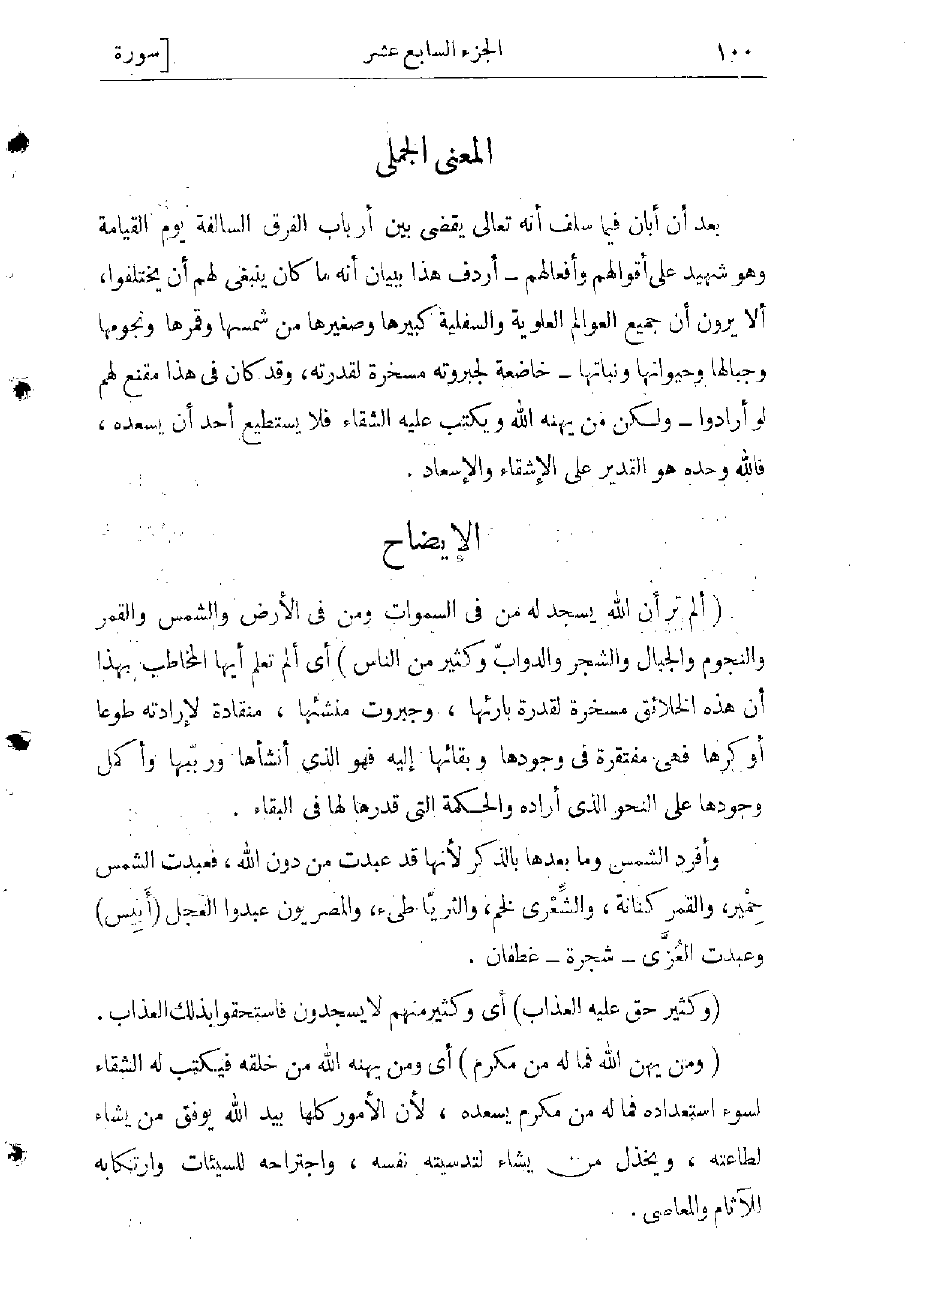 ١٠٠ الجزء السابع عشر [سورة
المعنى الجملى
بعد أن أبان فيما سلف أنه تعالى يقضى بين أرباب الفرق السالفة يوم القيامة
وهو شهيد على أقوالهم وأفعالهم – أردف هذا ببيان أنه ما كان ينبغى لهم أن يختلفوا،
ألا يرون أن جميع العوالم العلوية والسفلية كبيرها وصغيرها من شمسها وقمرها ونجومها
وجبالها وحيوانها ونباتها – خاضعة لجبروته مسخرة لقدرته، وقد كان فى هذا مقنع لهم
لو أرادوا – ولكن من يهنه الله ويكتب عليه الشقاء فلا يستطيع أحد أن يسعده ،
فالله وحده هو القدير على الإشقاء والإسعاد .
الإيضاح
( ألم تر أن الله يسجد له من فى السموات ومن فى الأرض والشمس والقمر
والنجوم والجبال والشجر والدوابّ وكثير من الناس ) أى ألم تعلم أيها المخاطب بهذا
أن هذه الخلائق مسخرة لقدرة بارئها ، وجبروت منشئها ، منقادة لإرادته طوعا
أو كرها فهى مفتقرة فى وجودها وبقائها إليه فهو الذي أنشأها وربّبها وأكمل
وجودها على النحو الذى أراده والحكمة التى قدرها لها فى البقاء .
وأفرد الشمس وما بعدها بالذكر لأنها قد عبدت من دون الله ، فعبدت الشمس
حِمْير، والقمر كنانة ، والشِّعْرى لخم، والثريّا طىء، والمصريون عبدوا العجل (أَبِيس)
وعبدت العُزَّى – شجرة – غطفان .
(وكثير حق عليه العذاب) أى وكثير منهم لا يسجدون فاستحقوا بذلك العذاب .
( ومن يهن الله فما له من مكرم ) أى ومن يهنه الله من خلقه فيكتب له الشقاء
لسوء استعداده فما له من مكرم يسعده ، لأن الأمور كلها بيد الله يوفق من يشاء
لطاعته ، ويخذل من يشاء لتدسيته نفسه ، واجتراحه للسيئات وارتكابه
للآثام والمعاصى .